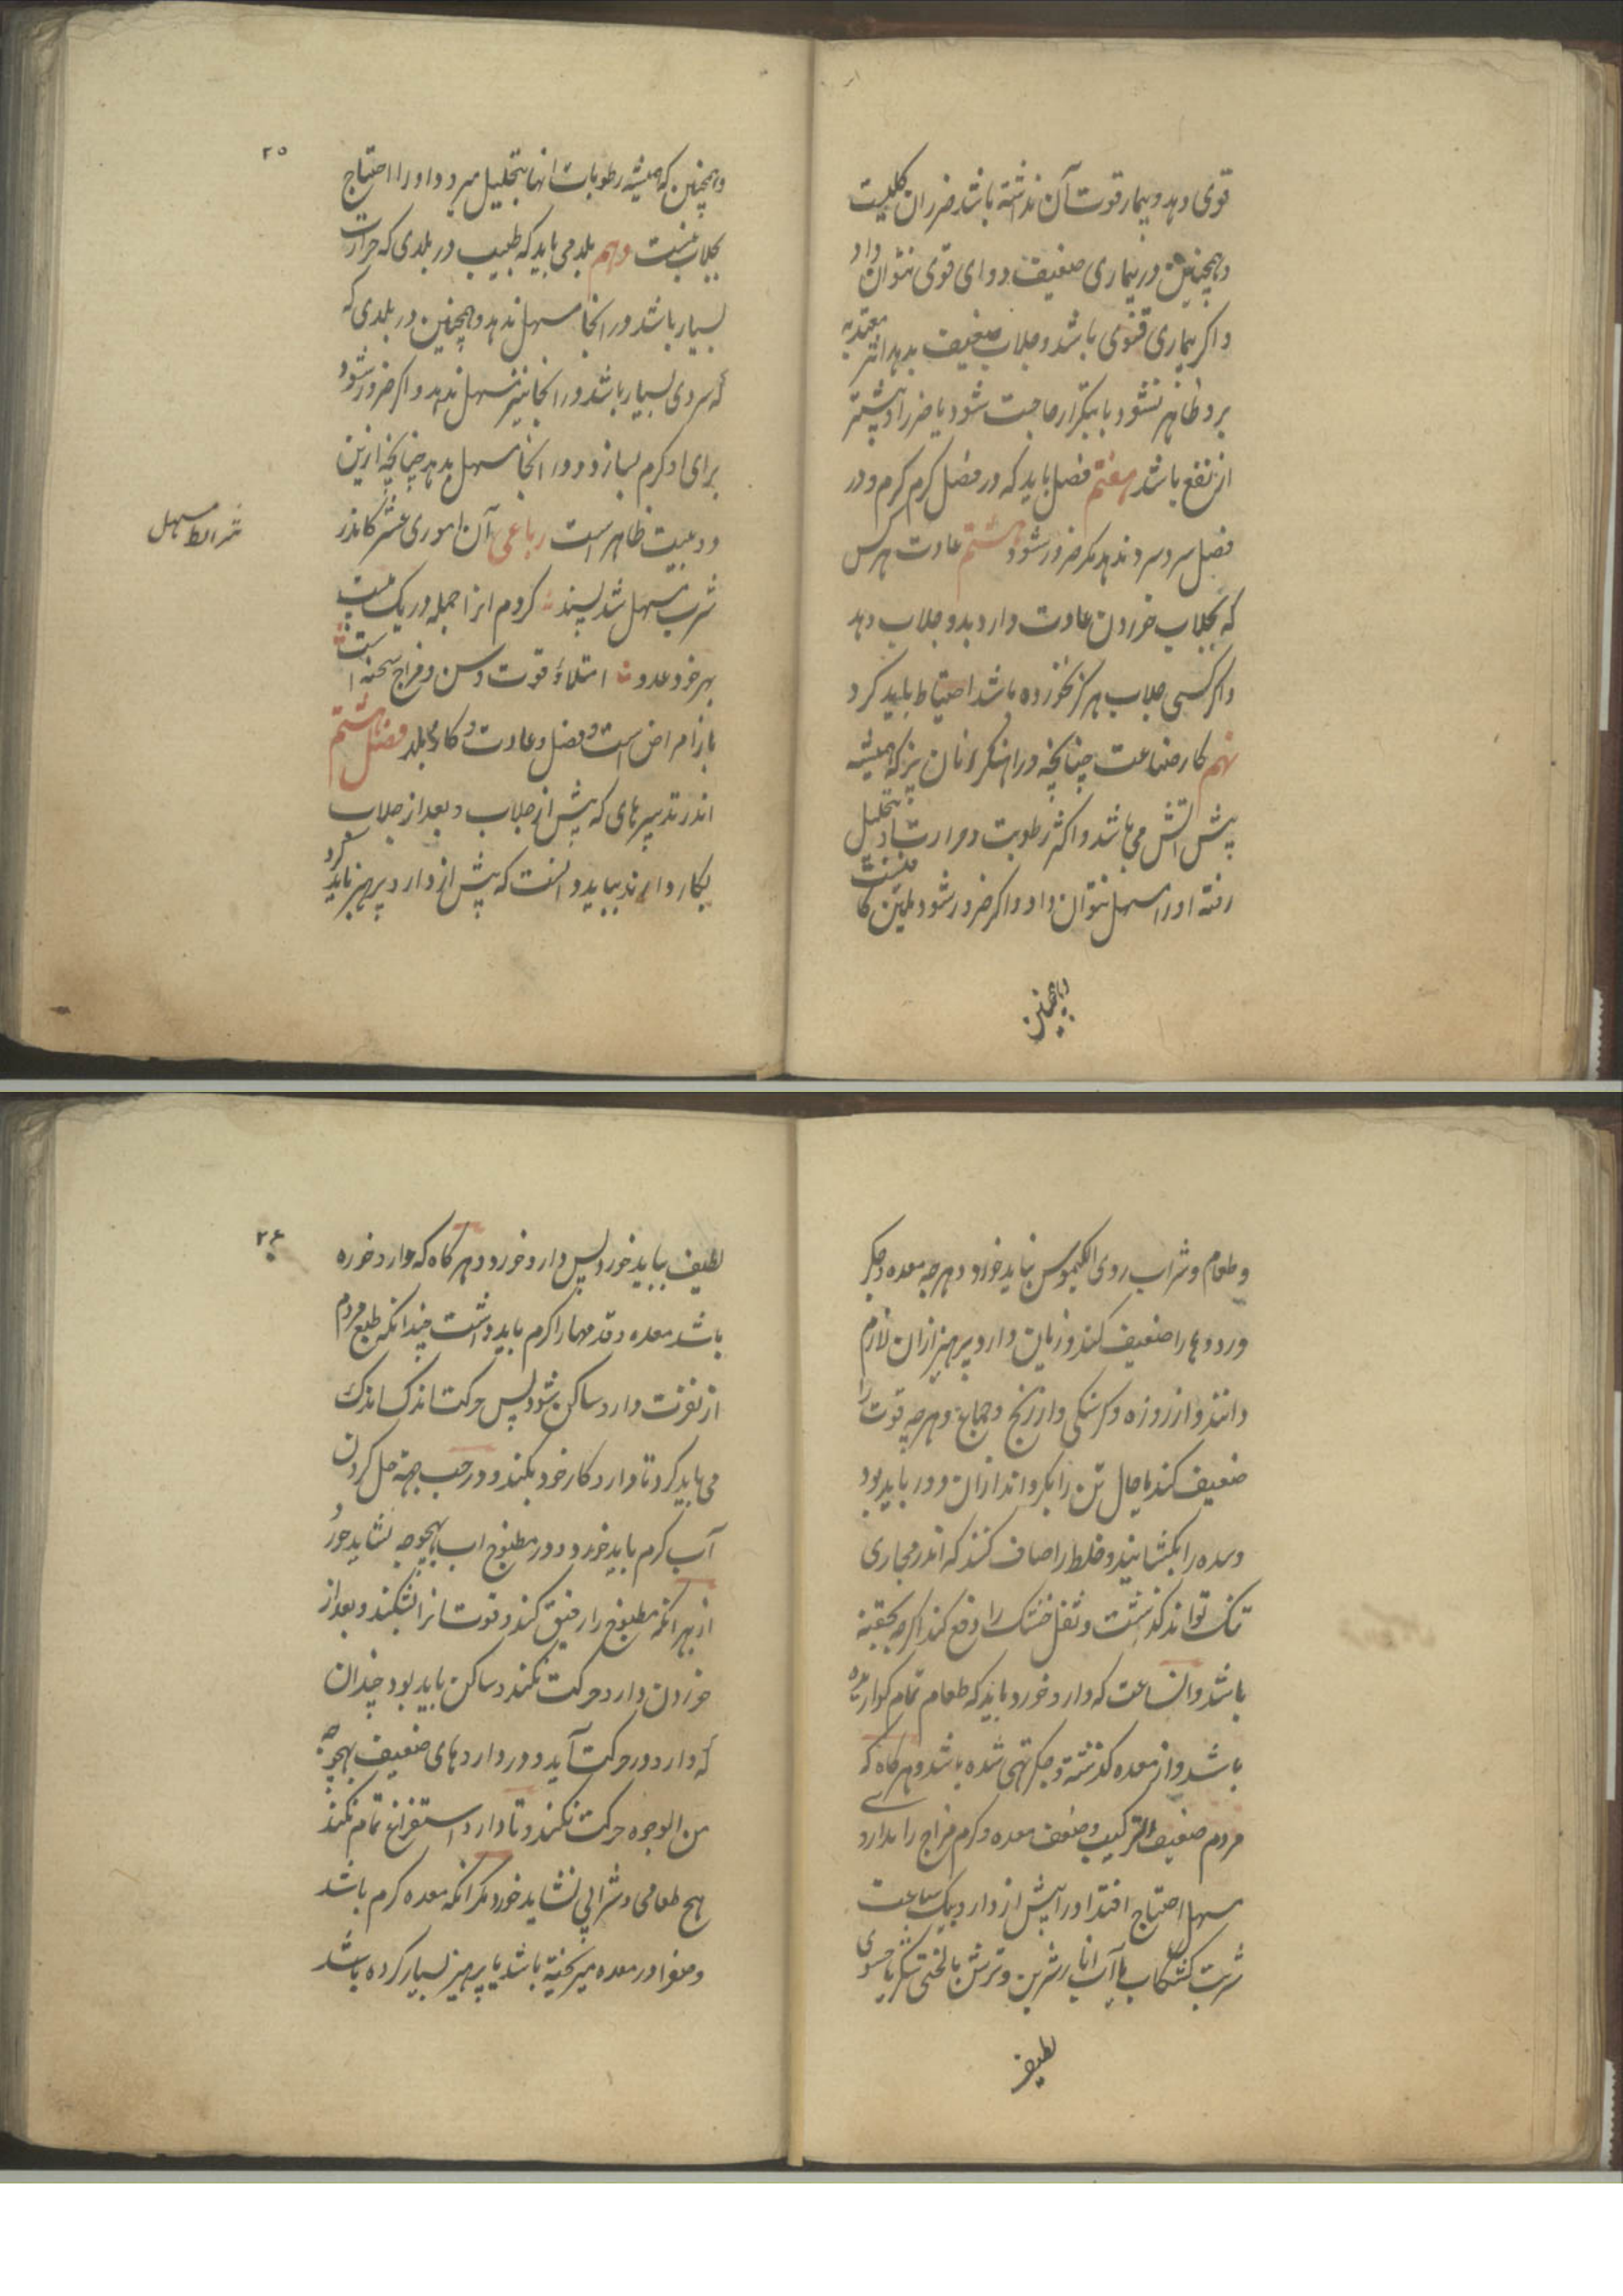 قوی دهد و بیمار قوت آن نداشته باشد ضرر ان کلیست
و همچنین در بیماری ضعیف دوای قوی نتوان داد
و اکر بیماری قوی باشد و جلاب ضعیف بدهد اثر معتد به
برو ظاهر نشود یا بتکرار حاجت شود یا ضرر او بیشتر
از نفع باشد هفتم فصل باید که در فصل کرم کرم و در
فصل سرد سرد ندهد مکر ضرور شود هشتم عادت هرکس
که بجلاب خوردن عادت دارد بدو جلاب دهد
و اکر کسی جلاب هرکز نخورده باشد احتیاط باید کرد
نهم کار صناعت چنانچه در اهنکر و نان پز که همیشه
پیش اتش می باشد و اکثر رطوبت و حرارت او بتحلیل
رفته او را مسهل نتوان داد و اکر ضرور شود ملین کا فیست
و همچنین
۲۵
و همچنین که همیشه رطوبات انها بتحلیل میرود او را احتیاج
بجلاب نیست دهم بلد می باید که طبیب در بلدی که حرارت
بسیار باشد در انجا مسهل ندهد و همچنین در بلدی که
که سردی بسیار باشد در انجا نیز مسهل ندهد و اکر ضرور شود
برای او کرم بسازد و در انجا مسهل بدهد چنانچه ازین
دو بیت ظاهر است رباعی آن اموری عشر کاندر
شرب مسهل شد پسند کردم از اجمله در یک بیت
بهر خود عدد امتلاء و قوت و سن و مزاج سحنه است
باز امراض است و فصل و عادت و کار و بلد فصل هشتم
اندر تدبیرهای که پیش از جلاب و بعد از جلاب
بکار دارند بباید دانست که پیش از دارو پرهیز باید کرد
شرائط مسهل
و طعام و شراب ردی الکیموس نباید خورد و هرچه معده و جکر
و رودها را ضعیف کند و زیان دارد پرهیز ازان لازم
دانند و از روزه و کرسنکی و از رنج و جماع و هرچه قوت را
ضعیف کند یا حال تن را بکرداند ازان دور باید بود
و سده را بکشایند و خلط را صاف کنند که اندر مجاری
تنک تواند کذشت و ثفل خشک را دفع کند اکرچه بحقنه
باشد و انساعت که دارو خورد باید که طعام تمام کوارشده
باشد و از معده کذشته و جکر تهی شده باشد و هرکاه که
مردم ضعیف الترکیب و ضعف معده و کرم مزاج را بدارو
مسهل احتیاج افتد او را پیش از دارو بیک ساعت
شربت کشکاب یا آب انار شیرین و ترش با لختی شکر یا حسوی
لطیف
۲۶
لطیف بباید خورد پس دارو خورد و هرکاه که دارو خورده
باشد معده و قدمها را کرم باید داشت چندانکه طبع مردم
از نفرت دارو ساکن شود پس حرکت اندک اندک
می باید کرد تا دارو کار خود بکند و در حب بجهة حل کردن
آب کرم باید خورد و در مطبوخ اب بهیچ وجه نشاید خورد
از بهر انکه مطبوخ را رقیق کند و قوت انرا بشکند و بعد از
خوردن دارو حرکت نکند و ساکن باید بود چندان
که دارو در حرکت آید و در داروهای ضعیف بهیچ وجه
من الوجوه حرکت نکند و تا دارو استفراغ تمام نکند
هیچ طعامی و شرابی نشاید خورد مکر انکه معده کرم باشد
و صفرا در معده میریخته باشد یا پرهیز بسیار کرده باشد